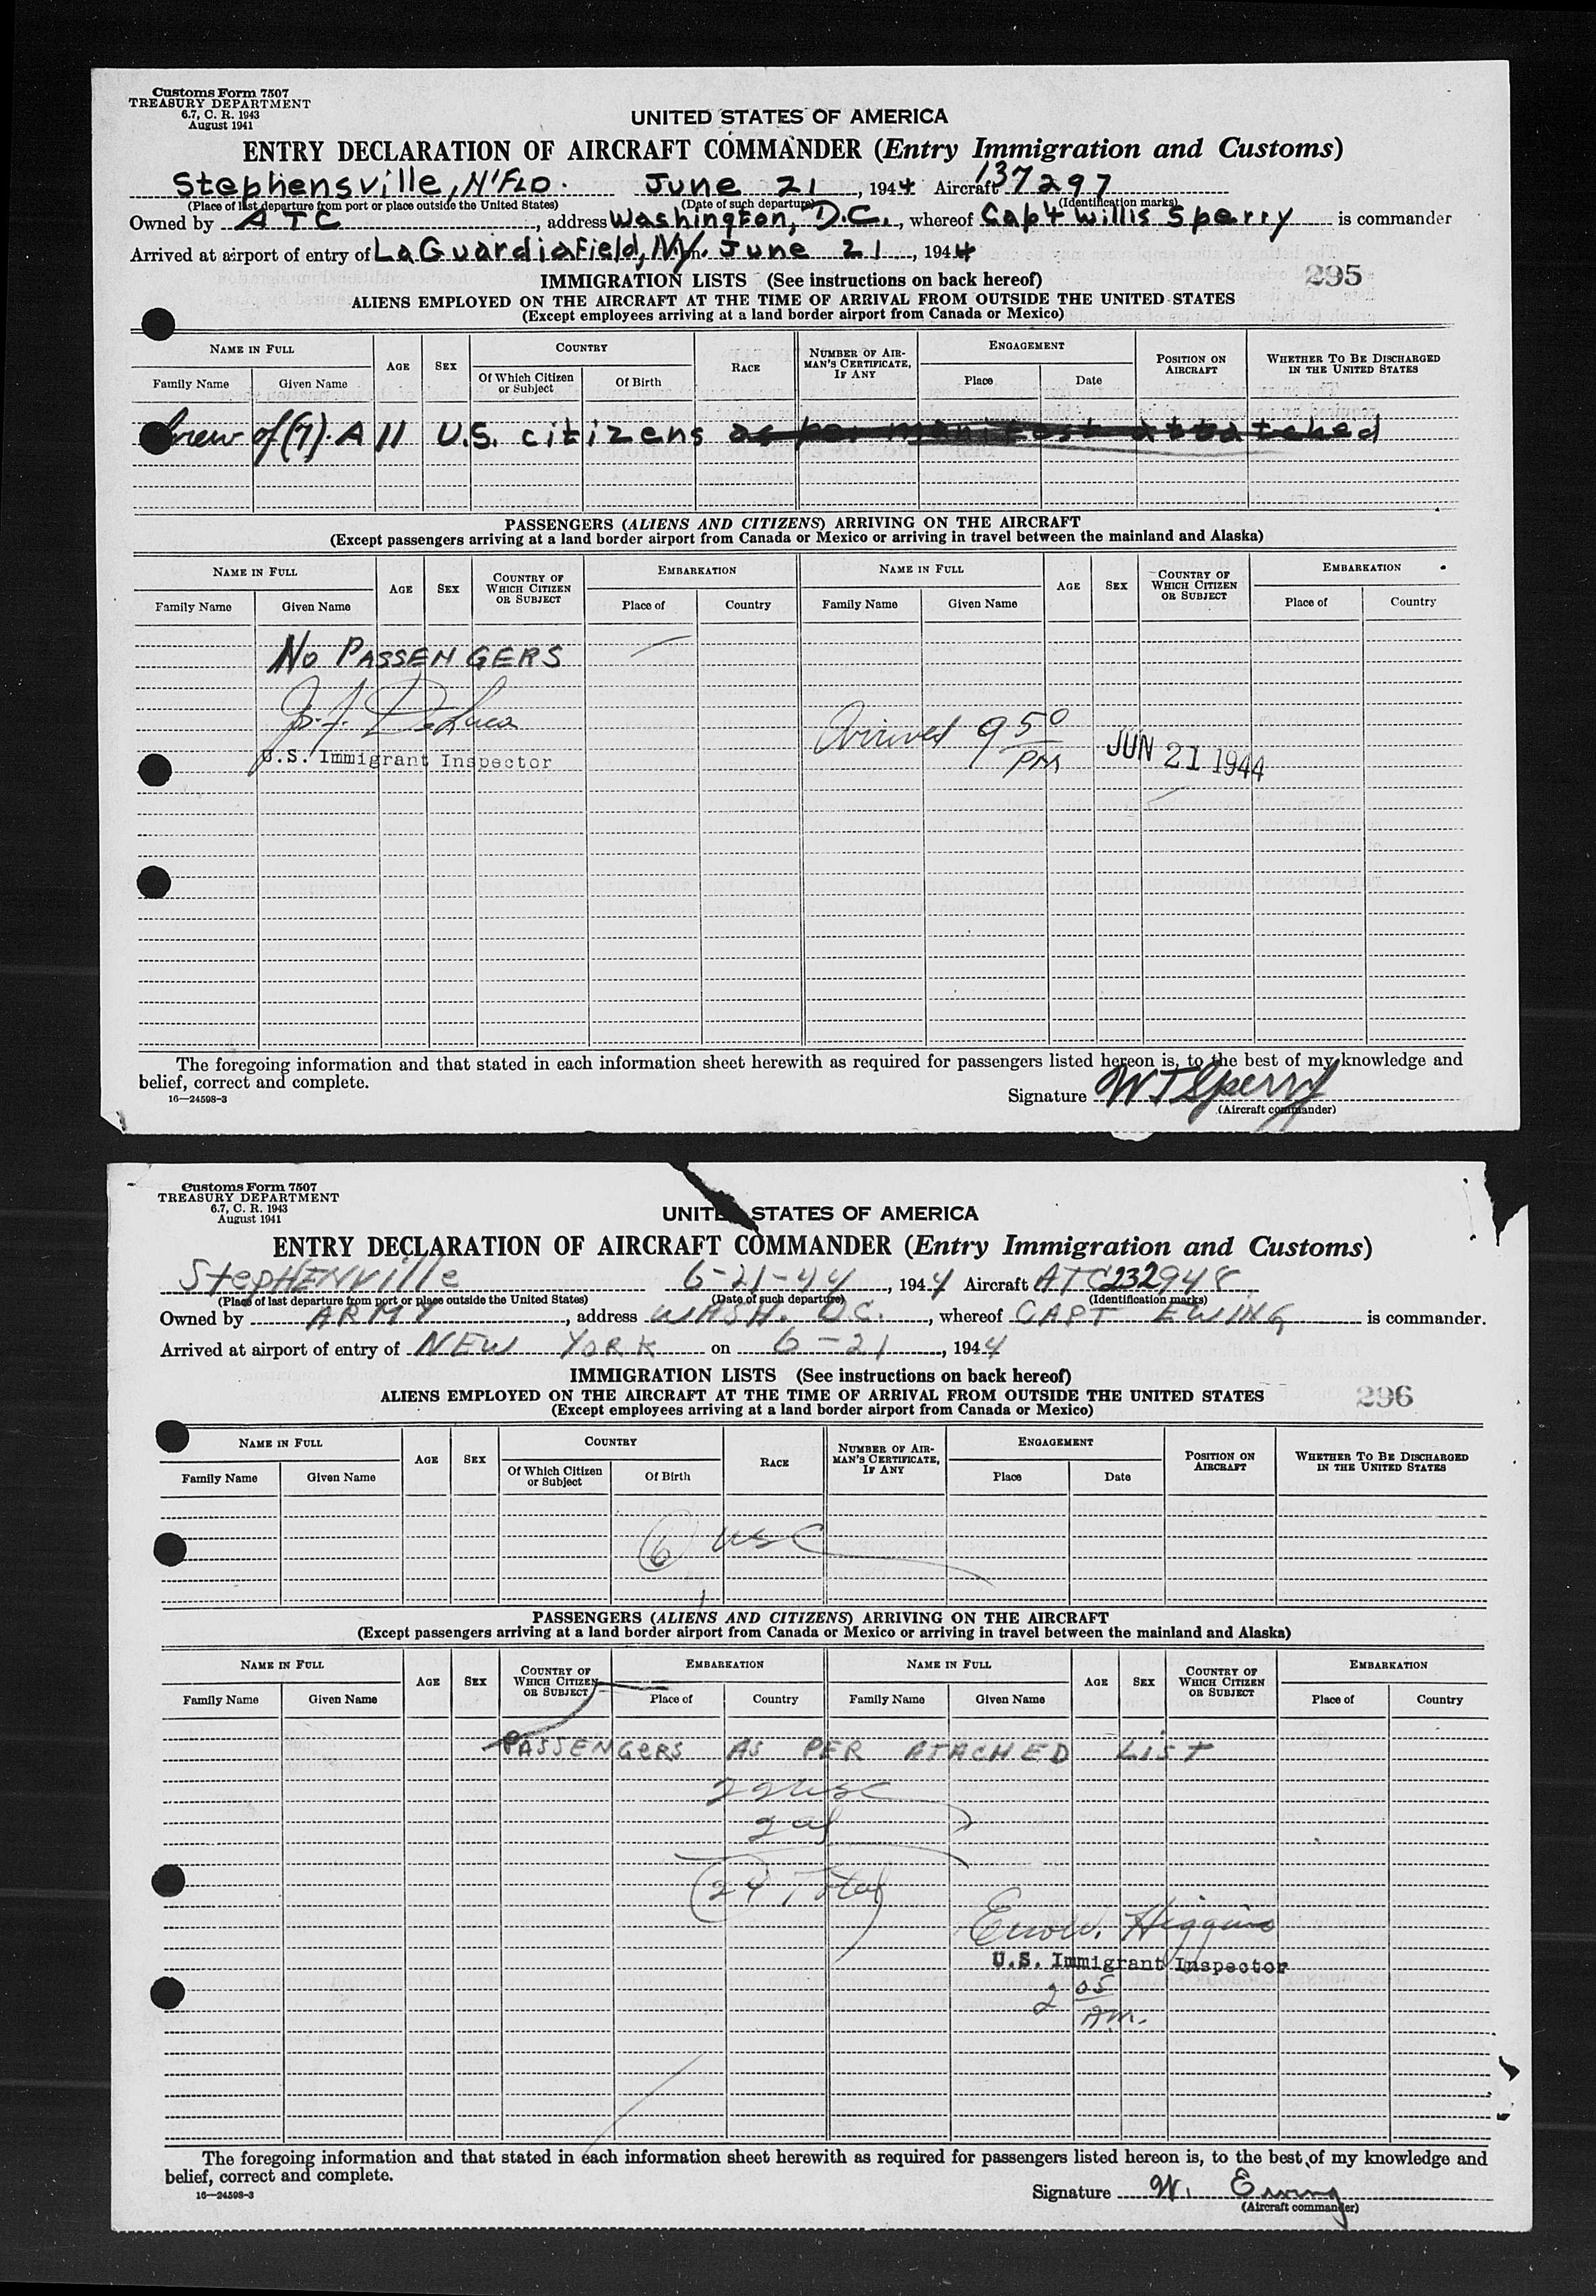 Customs Form 7507
TREASURY DEPARTMENT
6.7, C. R. 1943
August 1941
UNITED STATES OF AMERICA
ENTRY DECLARATION OF AIRCRAFT COMMANDER (Entry Immigration and Customs)
Stephensville, N'FLD. June 21, 1944 Aircraft 137297
(Place of last departure from port or place outside the United States) (Date of such departure) (Identification marks)
Owned by ATC, address Washington, D.C., whereof Cap't Willis Sperry is commander
Arrived at airport of entry of LaGuardia Field, N.Y. June 21, 1944
295
IMMIGRATION LISTS (See instructions on back hereof)
ALIENS EMPLOYED ON THE AIRCRAFT AT THE TIME OF ARRIVAL FROM OUTSIDE THE UNITED STATES
(Except employees arriving at a land border airport from Canada or Mexico)
NAME IN FULL AGE SEX COUNTRY RACE NUMBER OF AIRMAN'S CERTIFICATE, IF ANY ENGAGEMENT POSITION ON AIRCRAFT WHETHER TO BE DISCHARGED IN THE UNITED STATES
Family Name Given Name Of Which Citizen or Subject Of Birth Place Date
Crew of (7). All U.S. citizens as per manifest attatched
PASSENGERS (ALIENS AND CITIZENS) ARRIVING ON THE AIRCRAFT
(Except passengers arriving at a land border airport from Canada or Mexico or arriving in travel between the mainland and Alaska)
NAME IN FULL AGE SEX COUNTRY OF WHICH CITIZEN OR SUBJECT EMBARKATION NAME IN FULL AGE SEX COUNTRY OF WHICH CITIZEN OR SUBJECT EMBARKATION
Family Name Given Name Place of Country Family Name Given Name Place of Country
NO PASSENGERS
DeLuca
Arrived 9 50 PM JUN 21 1944
U.S. Immigrant Inspector
The foregoing information and that stated in each information sheet herewith as required for passengers listed hereon is, to the best of my knowledge and
belief, correct and complete.
16—24598-3
Signature WTSperry
(Aircraft commander)
Customs Form 7507
TREASURY DEPARTMENT
6.7, C. R. 1943
August 1941
UNITE STATES OF AMERICA
ENTRY DECLARATION OF AIRCRAFT COMMANDER (Entry Immigration and Customs)
StepHENville 6-21-44, 1944 Aircraft ATC232948
(Place of last departure from port or place outside the United States) (Date of such departure) (Identification marks)
Owned by ARMY, address WASH. D.C., whereof CAPT EWING is commander.
Arrived at airport of entry of NEW YORK on 6-21, 1944
IMMIGRATION LISTS (See instructions on back hereof)
296
ALIENS EMPLOYED ON THE AIRCRAFT AT THE TIME OF ARRIVAL FROM OUTSIDE THE UNITED STATES
(Except employees arriving at a land border airport from Canada or Mexico)
NAME IN FULL AGE SEX COUNTRY RACE NUMBER OF AIRMAN'S CERTIFICATE, IF ANY ENGAGEMENT POSITION ON AIRCRAFT WHETHER TO BE DISCHARGED IN THE UNITED STATES
Family Name Given Name Of Which Citizen or Subject Of Birth Place Date
6 USC
PASSENGERS (ALIENS AND CITIZENS) ARRIVING ON THE AIRCRAFT
(Except passengers arriving at a land border airport from Canada or Mexico or arriving in travel between the mainland and Alaska)
NAME IN FULL AGE SEX COUNTRY OF WHICH CITIZEN OR SUBJECT EMBARKATION NAME IN FULL AGE SEX COUNTRY OF WHICH CITIZEN OR SUBJECT EMBARKATION
Family Name Given Name Place of Country Family Name Given Name Place of Country
PASSENGERS AS PER ATACHED LIST
22 usc
2 al
24 Total
Higgins
U.S. Immigrant Inspector
2 05 AM.
The foregoing information and that stated in each information sheet herewith as required for passengers listed hereon is, to the best of my knowledge and
belief, correct and complete.
16—24598-3
Signature W. Ewing
(Aircraft commander)